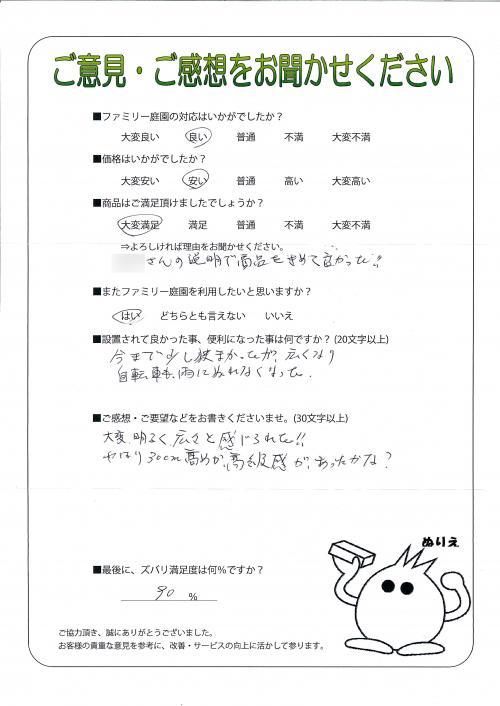 ご意見・ご感想をお聞かせください
■ファミリー庭園の対応はいかがでしたか？
大変良い 良い 普通 不満 大変不満
■価格はいかがでしたか？
大変安い 安い 普通 高い 大変高い
■商品はご満足頂けましたでしょうか？
大変満足 満足 普通 不満 大変不満
⇒よろしければ理由をお聞かせください。
さんの説明で商品をきめて良かった!!
■またファミリー庭園を利用したいと思いますか？
はい どちらとも言えない いいえ
■設置されて良かった事、便利になった事は何ですか？(20文字以上)
今まで少し狭まかったが、広くなり
自転車も雨にぬれなくなった.
■ご感想・ご要望などをお書きくださいませ。(30文字以上)
大変、明るく、広々と感じられた!!
やはり30cm高めが、高級感が、あったかな？
ぬりえ
■最後に、ズバリ満足度は何％ですか？
90 ％
ご協力頂き、誠にありがとうございました。
お客様の貴重な意見を参考に、改善・サービスの向上に活かして参ります。